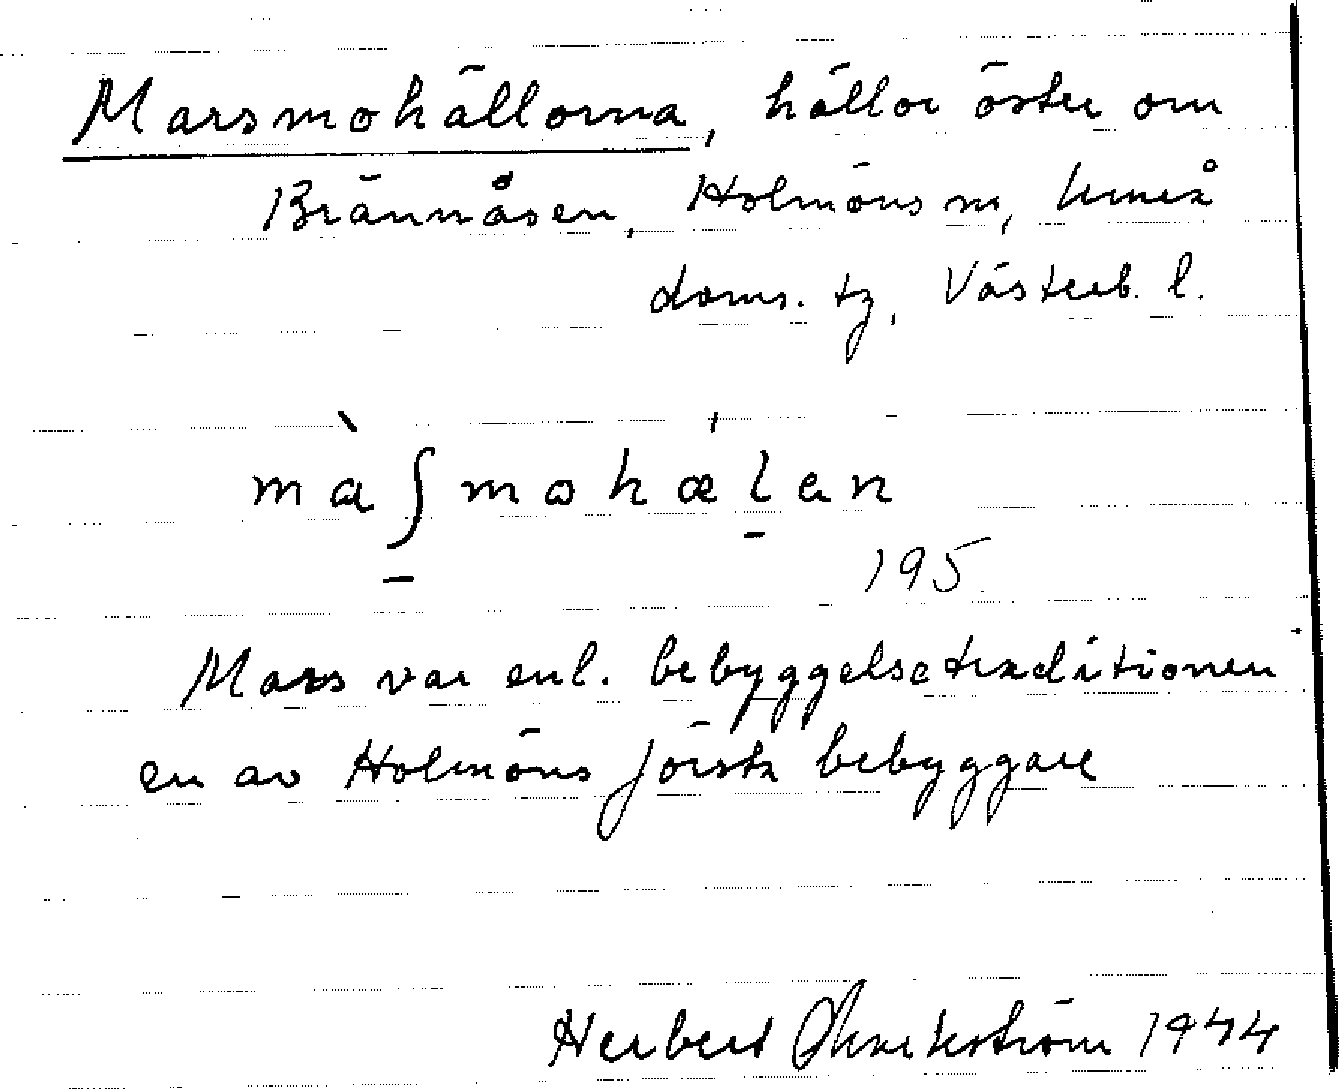 Marsmohällorna, hällor öster om
Brännåsen, Holmöns sn, Umeå
doms. tg, Västerb. l.
màʃmohælan
195
Mars var enl. bebyggelsetraditionen
en av Holmöns första bebyggare
Herbert 1944